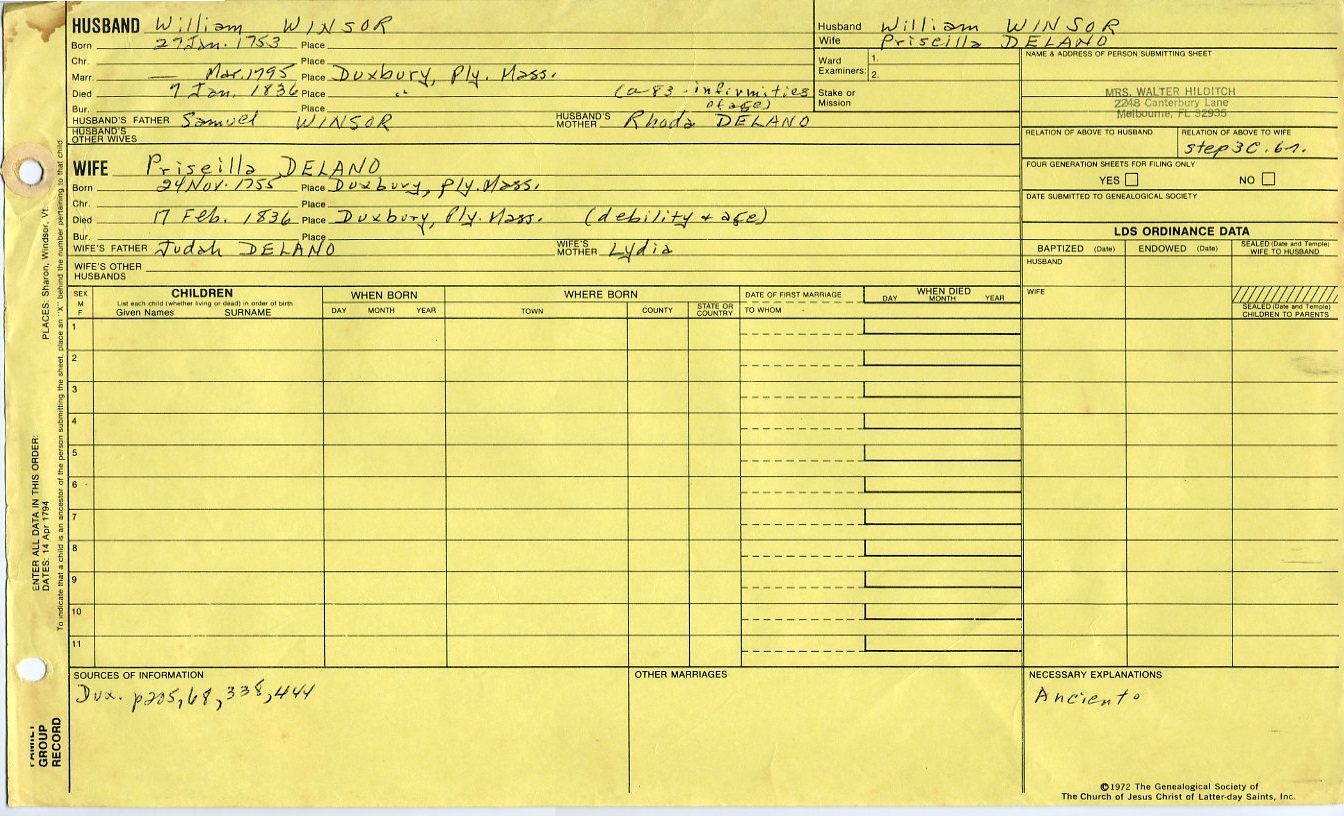 HUSBAND William WINSOR
Born 27 Jan. 1753 Place
Chr. Place
Marr. — Mar. 1795 Place Duxbury, Ply. Mass.
Died 7 Jan. 1836 Place " (a 83 - infirmities of age)
Bur. Place
HUSBAND'S FATHER Samuel WINSOR HUSBAND'S MOTHER Rhoda DELANO
HUSBAND'S OTHER WIVES
WIFE Priscilla DELANO
Born 24 Nov. 1755 Place Duxbury, Ply. Mass.
Chr. Place
Died 17 Feb. 1836 Place Duxbury, Ply. Mass. (debility + age)
Bur. Place
WIFE'S FATHER Judah DELANO WIFE'S MOTHER Lydia
WIFE'S OTHER HUSBANDS
Husband William WINSOR
Wife Priscilla DELANO
Ward Examiners: 1.
2.
Stake or Mission
NAME & ADDRESS OF PERSON SUBMITTING SHEET
MRS. WALTER HILDITCH
2248 Canterbury Lane
Melbourne, FL 32935
RELATION OF ABOVE TO HUSBAND RELATION OF ABOVE TO WIFE
step 3C. 6r.
FOUR GENERATION SHEETS FOR FILING ONLY
YES NO
DATE SUBMITTED TO GENEALOGICAL SOCIETY
LDS ORDINANCE DATA
BAPTIZED (Date) ENDOWED (Date) SEALED (Date and Temple) WIFE TO HUSBAND
HUSBAND
WIFE
SEALED (Date and Temple) CHILDREN TO PARENTS
SEX M F
CHILDREN
List each child (whether living or dead) in order of birth
Given Names SURNAME
WHEN BORN
DAY MONTH YEAR
WHERE BORN
TOWN COUNTY STATE OR COUNTRY
DATE OF FIRST MARRIAGE
TO WHOM
WHEN DIED
DAY MONTH YEAR
1
2
3
4
5
6
7
8
9
10
11
SOURCES OF INFORMATION
Dux. p205, 68, 338, 444
OTHER MARRIAGES
NECESSARY EXPLANATIONS
Ancient o
©1972 The Genealogical Society of
The Church of Jesus Christ of Latter-day Saints, Inc.
FAMILY GROUP RECORD
ENTER ALL DATA IN THIS ORDER:
DATES: 14 Apr 1794
PLACES: Sharon, Windsor, Vt.
To indicate that a child is an ancestor of the person submitting the sheet, place an "X" behind the number pertaining to that child